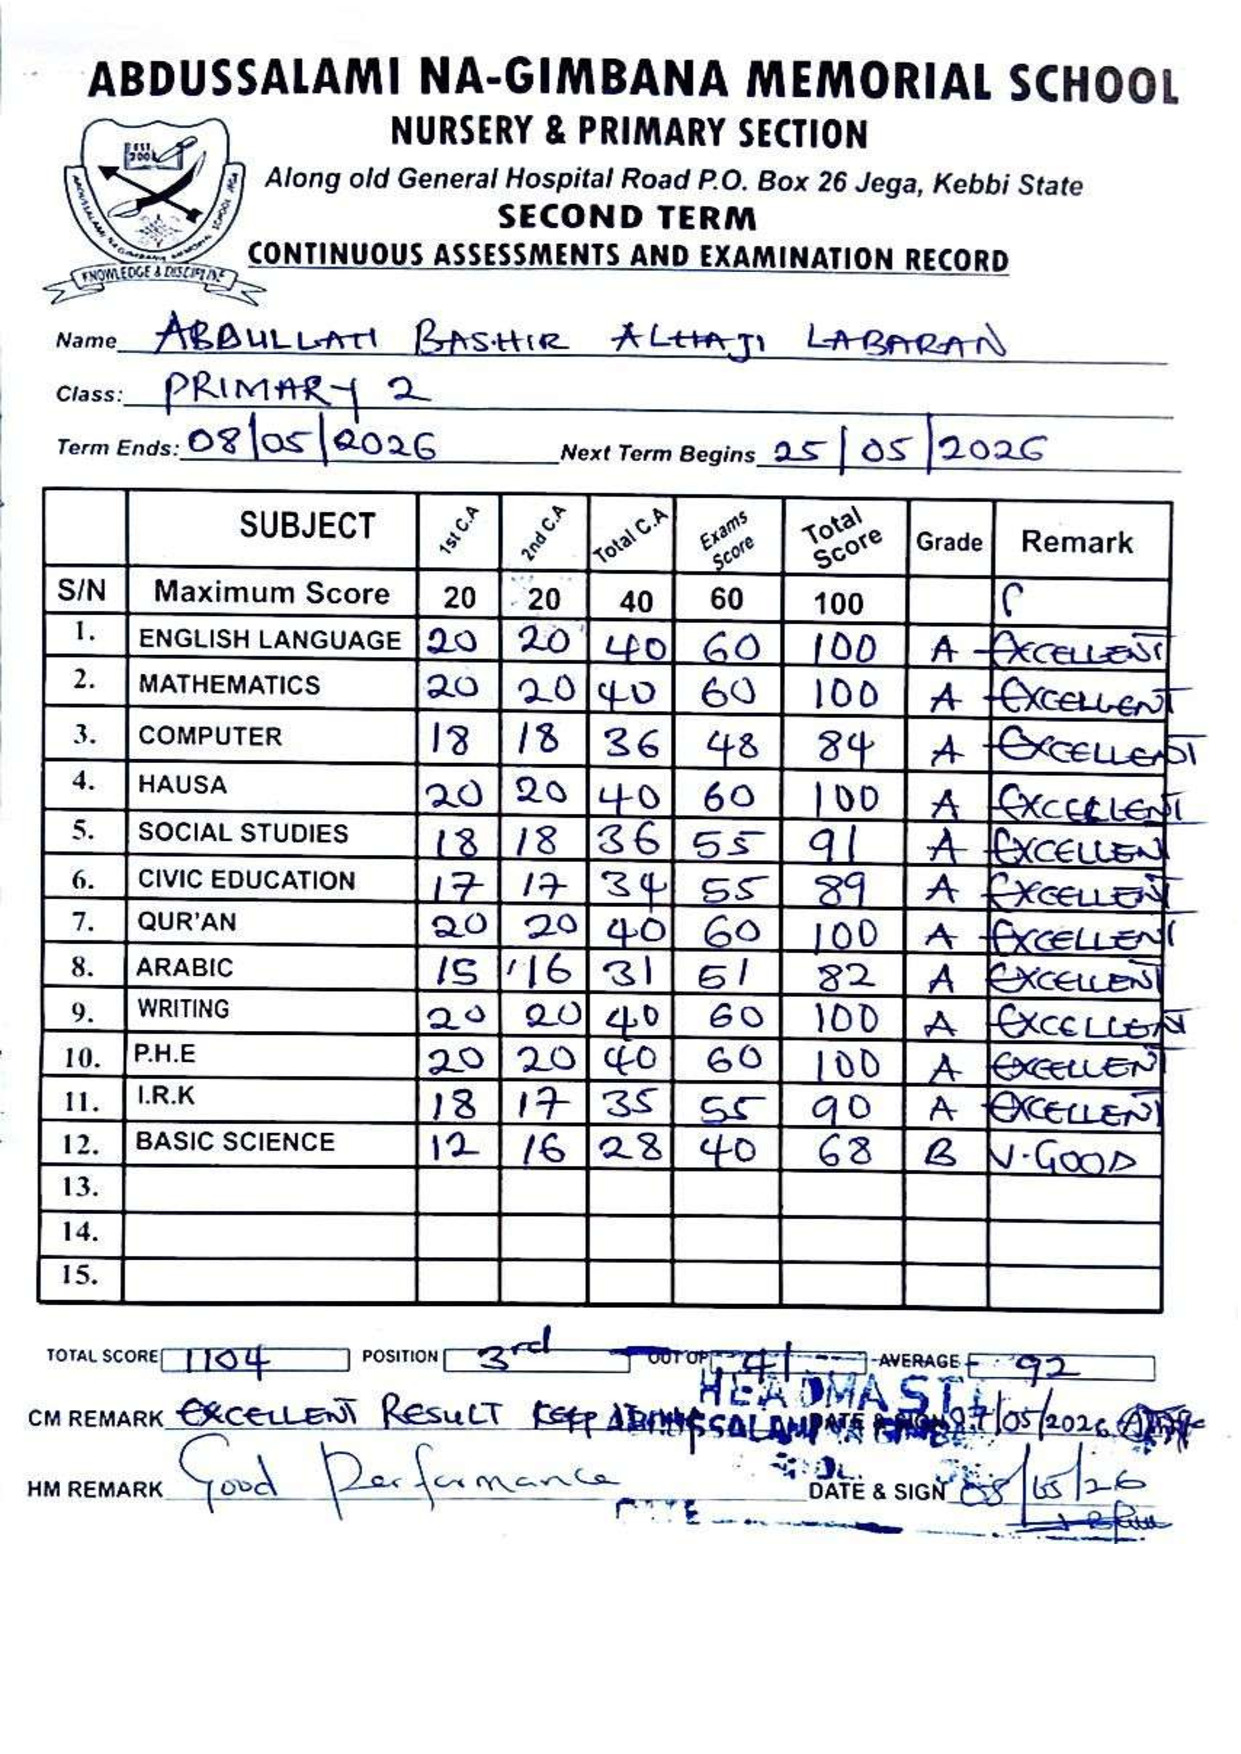 ABDUSSALAMI NA-GIMBANA MEMORIAL SCHOOL
NURSERY & PRIMARY SECTION
Along old General Hospital Road P.O. Box 26 Jega, Kebbi State
SECOND TERM
CONTINUOUS ASSESSMENTS AND EXAMINATION RECORD
EST 2001
ABDUSSALAMI NA-GIMBANA MEMORIAL SCHOOL JEGA
KNOWLEDGE & DISCIPLINE
Name ABDULLAHI BASHIR ALHAJI LABARAN
Class: PRIMARY 2
Term Ends: 08/05/2026 Next Term Begins 25/05/2026
SUBJECT 1st C.A 2nd C.A Total C.A Exams Score Total Score Grade Remark
S/N Maximum Score 20 20 40 60 100
1. ENGLISH LANGUAGE 20 20 40 60 100 A EXCELLENT
2. MATHEMATICS 20 20 40 60 100 A EXCELLENT
3. COMPUTER 18 18 36 48 84 A EXCELLENT
4. HAUSA 20 20 40 60 100 A EXCELLENT
5. SOCIAL STUDIES 18 18 36 55 91 A EXCELLEN
6. CIVIC EDUCATION 17 17 34 55 89 A EXCELLENT
7. QUR'AN 20 20 40 60 100 A EXCELLENT
8. ARABIC 15 16 31 51 82 A EXCELLENT
9. WRITING 20 20 40 60 100 A EXCELLENT
10. P.H.E 20 20 40 60 100 A EXCELLENT
11. I.R.K 18 17 35 55 90 A EXCELLENT
12. BASIC SCIENCE 12 16 28 40 68 B V.GOOD
13.
14.
15.
TOTAL SCORE 1104 POSITION 3rd OUT OF 41 AVERAGE 92
HEADMASTE
CM REMARK EXCELLENT RESULT KEEP DATE & SIGN 07/05/2026
HM REMARK Good Performance DATE & SIGN 08/05/26
DATE